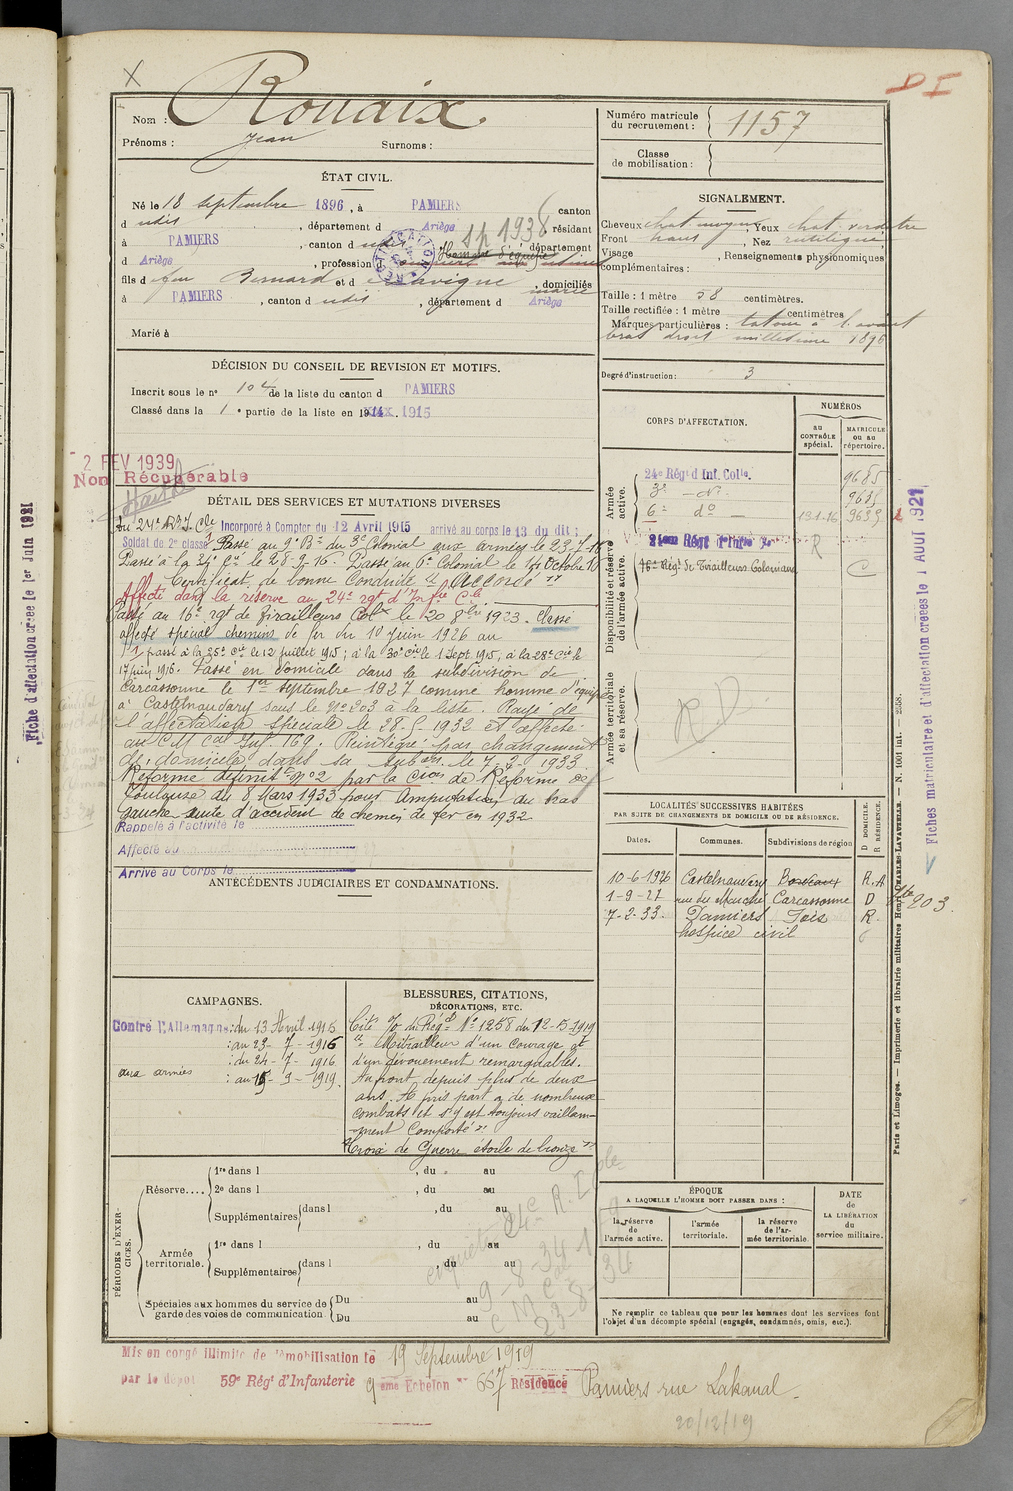 X
D I
Nom : Rouaix
Prénoms : Jean Surnoms :
Numéro matricule du recrutement : 1157
Classe de mobilisation :
ÉTAT CIVIL.
Né le 18 septembre 1896, à PAMIERS canton
d udis, département d Ariège résidant
à PAMIERS, canton d udis département
d Ariège, profession d Homme d'équipe
fils d feu Bernard et d Lavigne, domiciliés
à PAMIERS, canton d udis, département d Ariège
Marié à
SIGNALEMENT.
Cheveux chat moyen, Yeux chat verdatre
Front haut, Nez rectiligne
Visage , Renseignements physionomiques
complémentaires :
Taille : 1 mètre 58 centimètres.
Taille rectifiée : 1 mètre centimètres
Marques particulières : tatoué à l'avant
bras droit millésime 1896
Degré d'instruction : 3
DÉCISION DU CONSEIL DE REVISION ET MOTIFS.
Inscrit sous le n° 104 de la liste du canton d PAMIERS
Classé dans la 1e partie de la liste en 1915
2 FEV 1939
Non Récupérable
DÉTAIL DES SERVICES ET MUTATIONS DIVERSES
Au 24e R.I. Cle Incorporé à Compter du 12 Avril 1915 arrivé au corps le 13 du dit ;
Soldat de 2e classe Passé au 9e Bn du 3e Colonial aux armées le 23.7.16
Passé à la 34 Cie le 28.7.16. Passé au 6e Colonial le 1er Octobre 16
Certificat de bonne Conduite "Accordé"
Affecté dans la réserve au 24e rgt d'Infie Cle
Passé au 16e rgt de Tirailleurs Colx le 20 8bre 1923. Classé
affecté spécial chemins de fer du 10 Juin 1926 au
passé à la 25e Cie le 12 juillet 1915 ; à la 30e Cie le 1 Sept. 1915, à la 28e Cie le
17 juin 1916. Passé en domicile dans la subdivision de
Carcassonne le 1er septembre 1927 comme homme d'équipe
à Castelnaudary sous le n° 203 à la liste. Rayé de
l'affectation spéciale le 28-5-1932 et affecté
au CM Cal Inf. 169. Réintégré par changement
de domicile dans sa subon le 7.2.1933.
Réformé définitif n° 2 par la Cion de Réforme de
Toulouse du 8 Mars 1933 pour Amputation du bras
gauche suite d'accident de chemin de fer en 1932
Rappelé à l'activité le
Affecté au
Arrivé au Corps le
ANTÉCÉDENTS JUDICIAIRES ET CONDAMNATIONS.
CORPS D'AFFECTATION.
NUMÉROS
au CONTRÔLE spécial.
MATRICULE ou au répertoire.
Armée active.
24e Régt d Inf. Colle. 9685
3e — do — 9635
6e do — 13-1-16 9635
Disponibilité et réserve de l'armée active.
R
16e Régt de Tirailleurs Coloniaux C
Armée territoriale et sa réserve.
RD
LOCALITÉS SUCCESSIVES HABITÉES
PAR SUITE DE CHANGEMENTS DE DOMICILE OU DE RÉSIDENCE.
Dates. Communes. Subdivisions de région D DOMICILE. R RÉSIDENCE.
10-6-1926 Castelnaudary Bordeaux R.A
1-9-27 rue du Marché Carcassonne D
7-2-33. Pamiers Foix R
hospice civil
203.
CAMPAGNES.
Contre l'Allemagne : du 13 Avril 1915
: au 23 - 7 - 1916
: du 24 - 7 - 1916
aux armées : au 15 - 9 - 1919.
BLESSURES, CITATIONS,
DÉCORATIONS, ETC.
Cité à l'O du Régt N° 1258 du 12-5-1919
" Mitrailleur d'un Courage et
d'un dévouement remarquables.
Au front depuis plus de deux
ans. A pris part à de nombreux
combats et s'y est toujours vaillam-
ment Comporté".
"Croix de Guerre étoile de bronze"
PÉRIODES D'EXERCICES.
Réserve....
1re dans l , du au
2e dans l , du au
Supplémentaires dans l , du au
Armée territoriale.
1re dans l , du au
Supplémentaires dans l , du au
Spéciales aux hommes du service de garde des voies de communication
Du au
Du au
9-8-34
23-8-34
ÉPOQUE
A LAQUELLE L'HOMME DOIT PASSER DANS :
la réserve de l'armée active.
l'armée territoriale.
la réserve de l'armée territoriale.
DATE de LA LIBÉRATION du service militaire.
Ne remplir ce tableau que pour les hommes dont les services font
l'objet d'un décompte spécial (engagés, condamnés, omis, etc.).
Mis en congé illimité de démobilisation le 19 Septembre 1919
par le dépôt 59e Régt d'Infanterie 9eme Echelon n° 667 Résidence Pamiers rue Lakanal
20/12/19
Fiche d'affectation créée le 1er Juin 1921
Fiches matriculaire et d'affectation créées le 1 AOUT 1921
Paris et Limoges. — Imprimerie et librairie militaires Henri CHARLES-LAVAUZELLE. — N. 1001 int. — 2588.